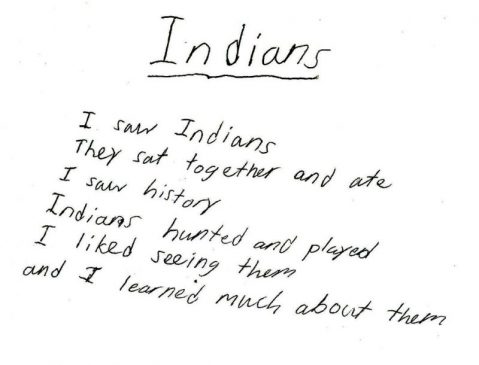 Indians
I saw Indians
They sat together and ate
I saw history
Indians hunted and played
I liked seeing them
and I learned much about them